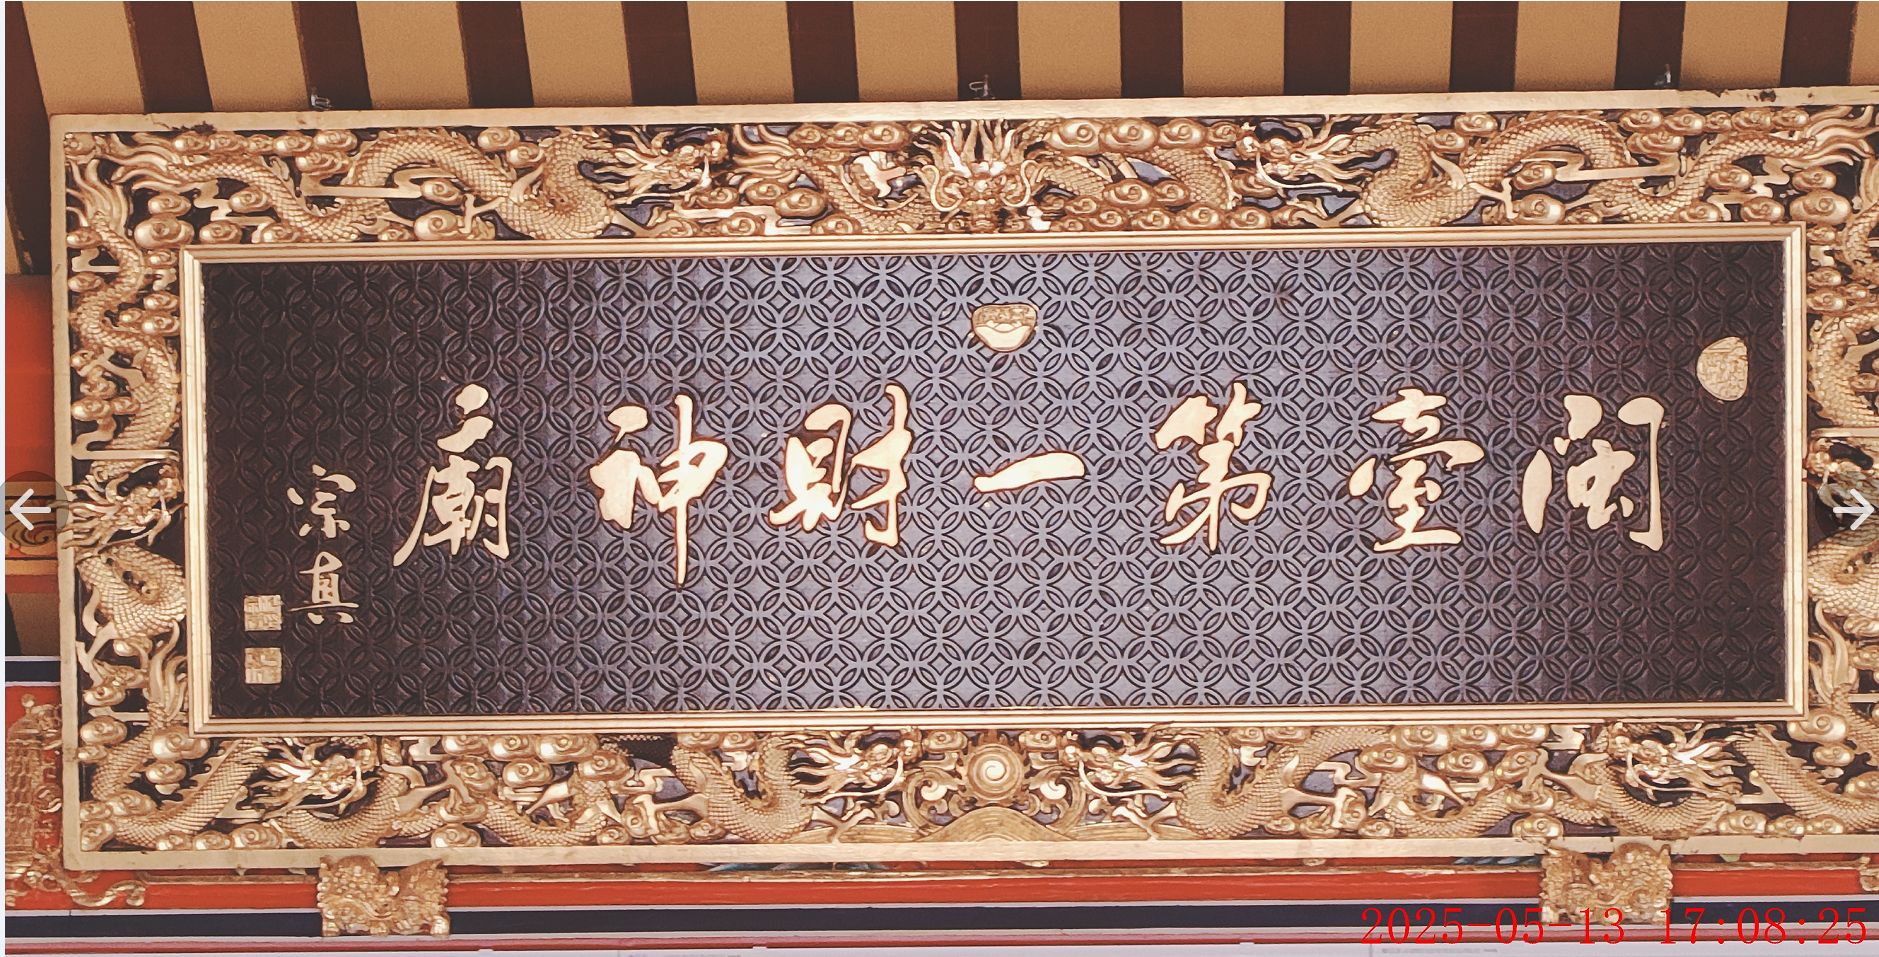 閩臺第一財神廟
宗真
2025-05-13 17:08:25